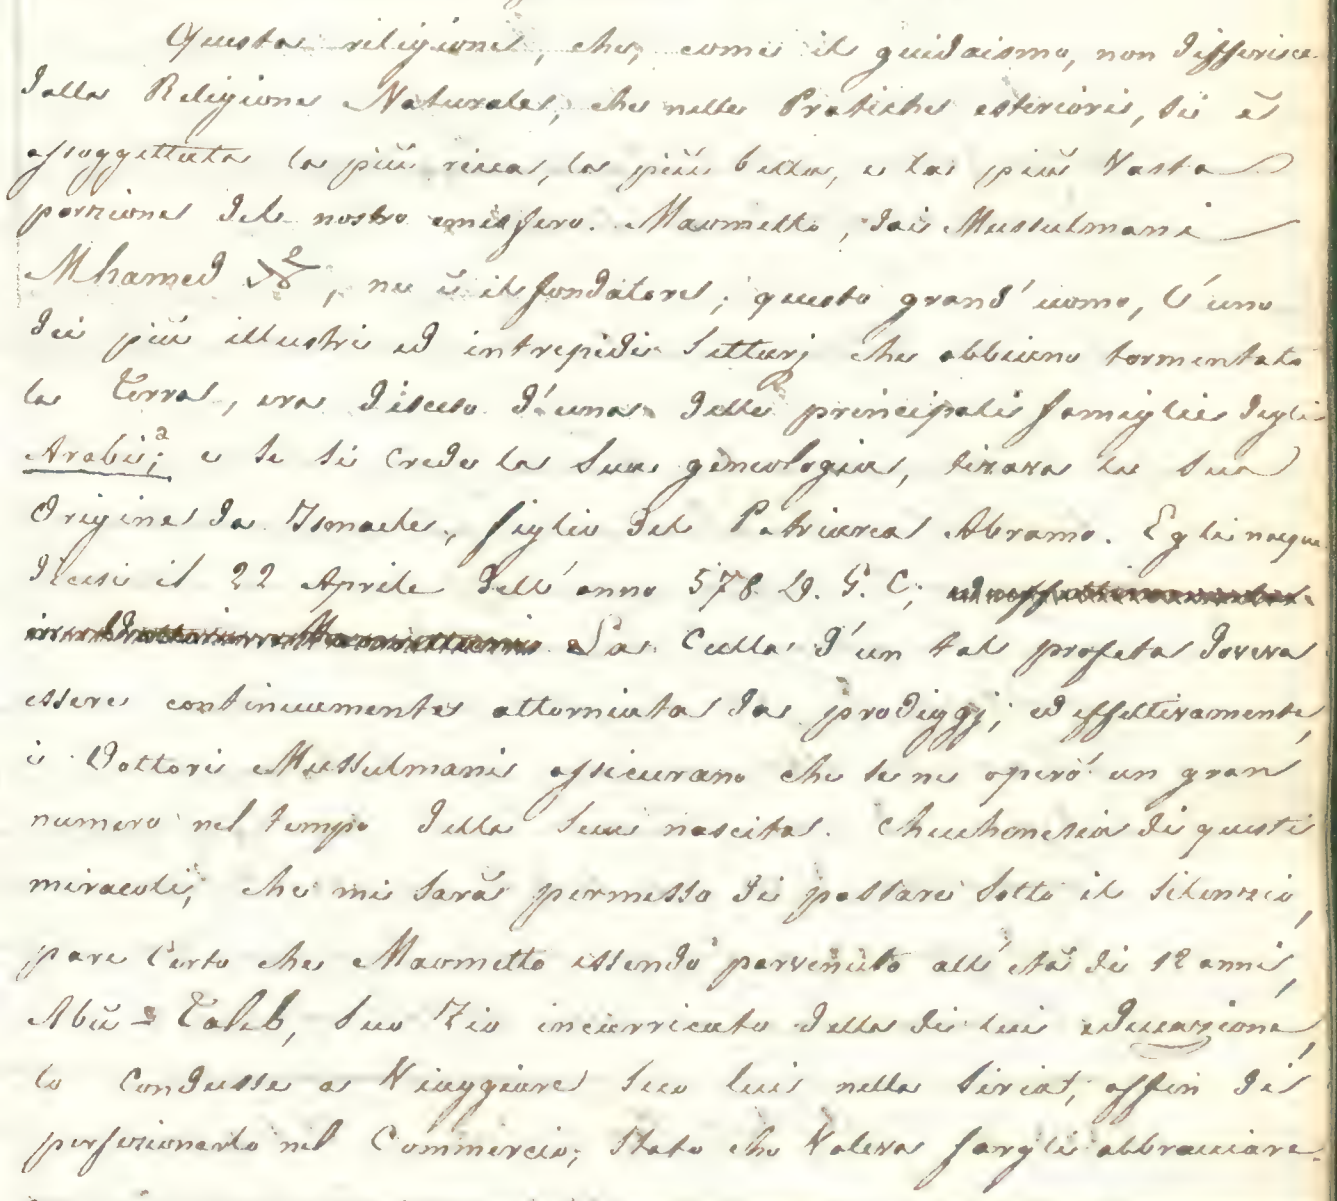 Questa religione, che, come il guidaismo, non differisce
dalla Religione Naturale, che nelle Pratiche esteriori, si è
assoggettata la più ricca, la più bella, e la più Vasta
porzione del nostro emisfero. Maometto, dai Mussulmani
Mhamed, ne è il fondatore; questo grand' uomo, l'uno
dei più illustri ed intrepidi Settarj che abbiano tormentato
la Terra, era disceso d'una delle principali famiglie degli
Arabi;ª e se si crede la sua geneologia, tirava la sua
Origine da Ismaele, figlio del Patriarca Abramo. Egli nacque
dicesi il 22 Aprile dell'anno 578. D. G. C;
La Culla d'un tal profeta doveva
essere continuamente attorniata da prodiggj; ed effettivamente,
i Dottori Mussulmani assicurano che se ne operò un gran
numero nel tempo della sua nascita. Checchonesia di questi
miracoli, che mi sarà permesso di passare sotto il silenzio,
pare Certo che Maometto essendo pervenuto all'età di 12 anni,
Abù = Taleb, suo Zio incarricato della di lui educazione,
lo Condusse a Viaggiare seco lui nella Siria, affin di
perfezionarlo nel Commercio; Stato che Voleva fargli abbracciare.